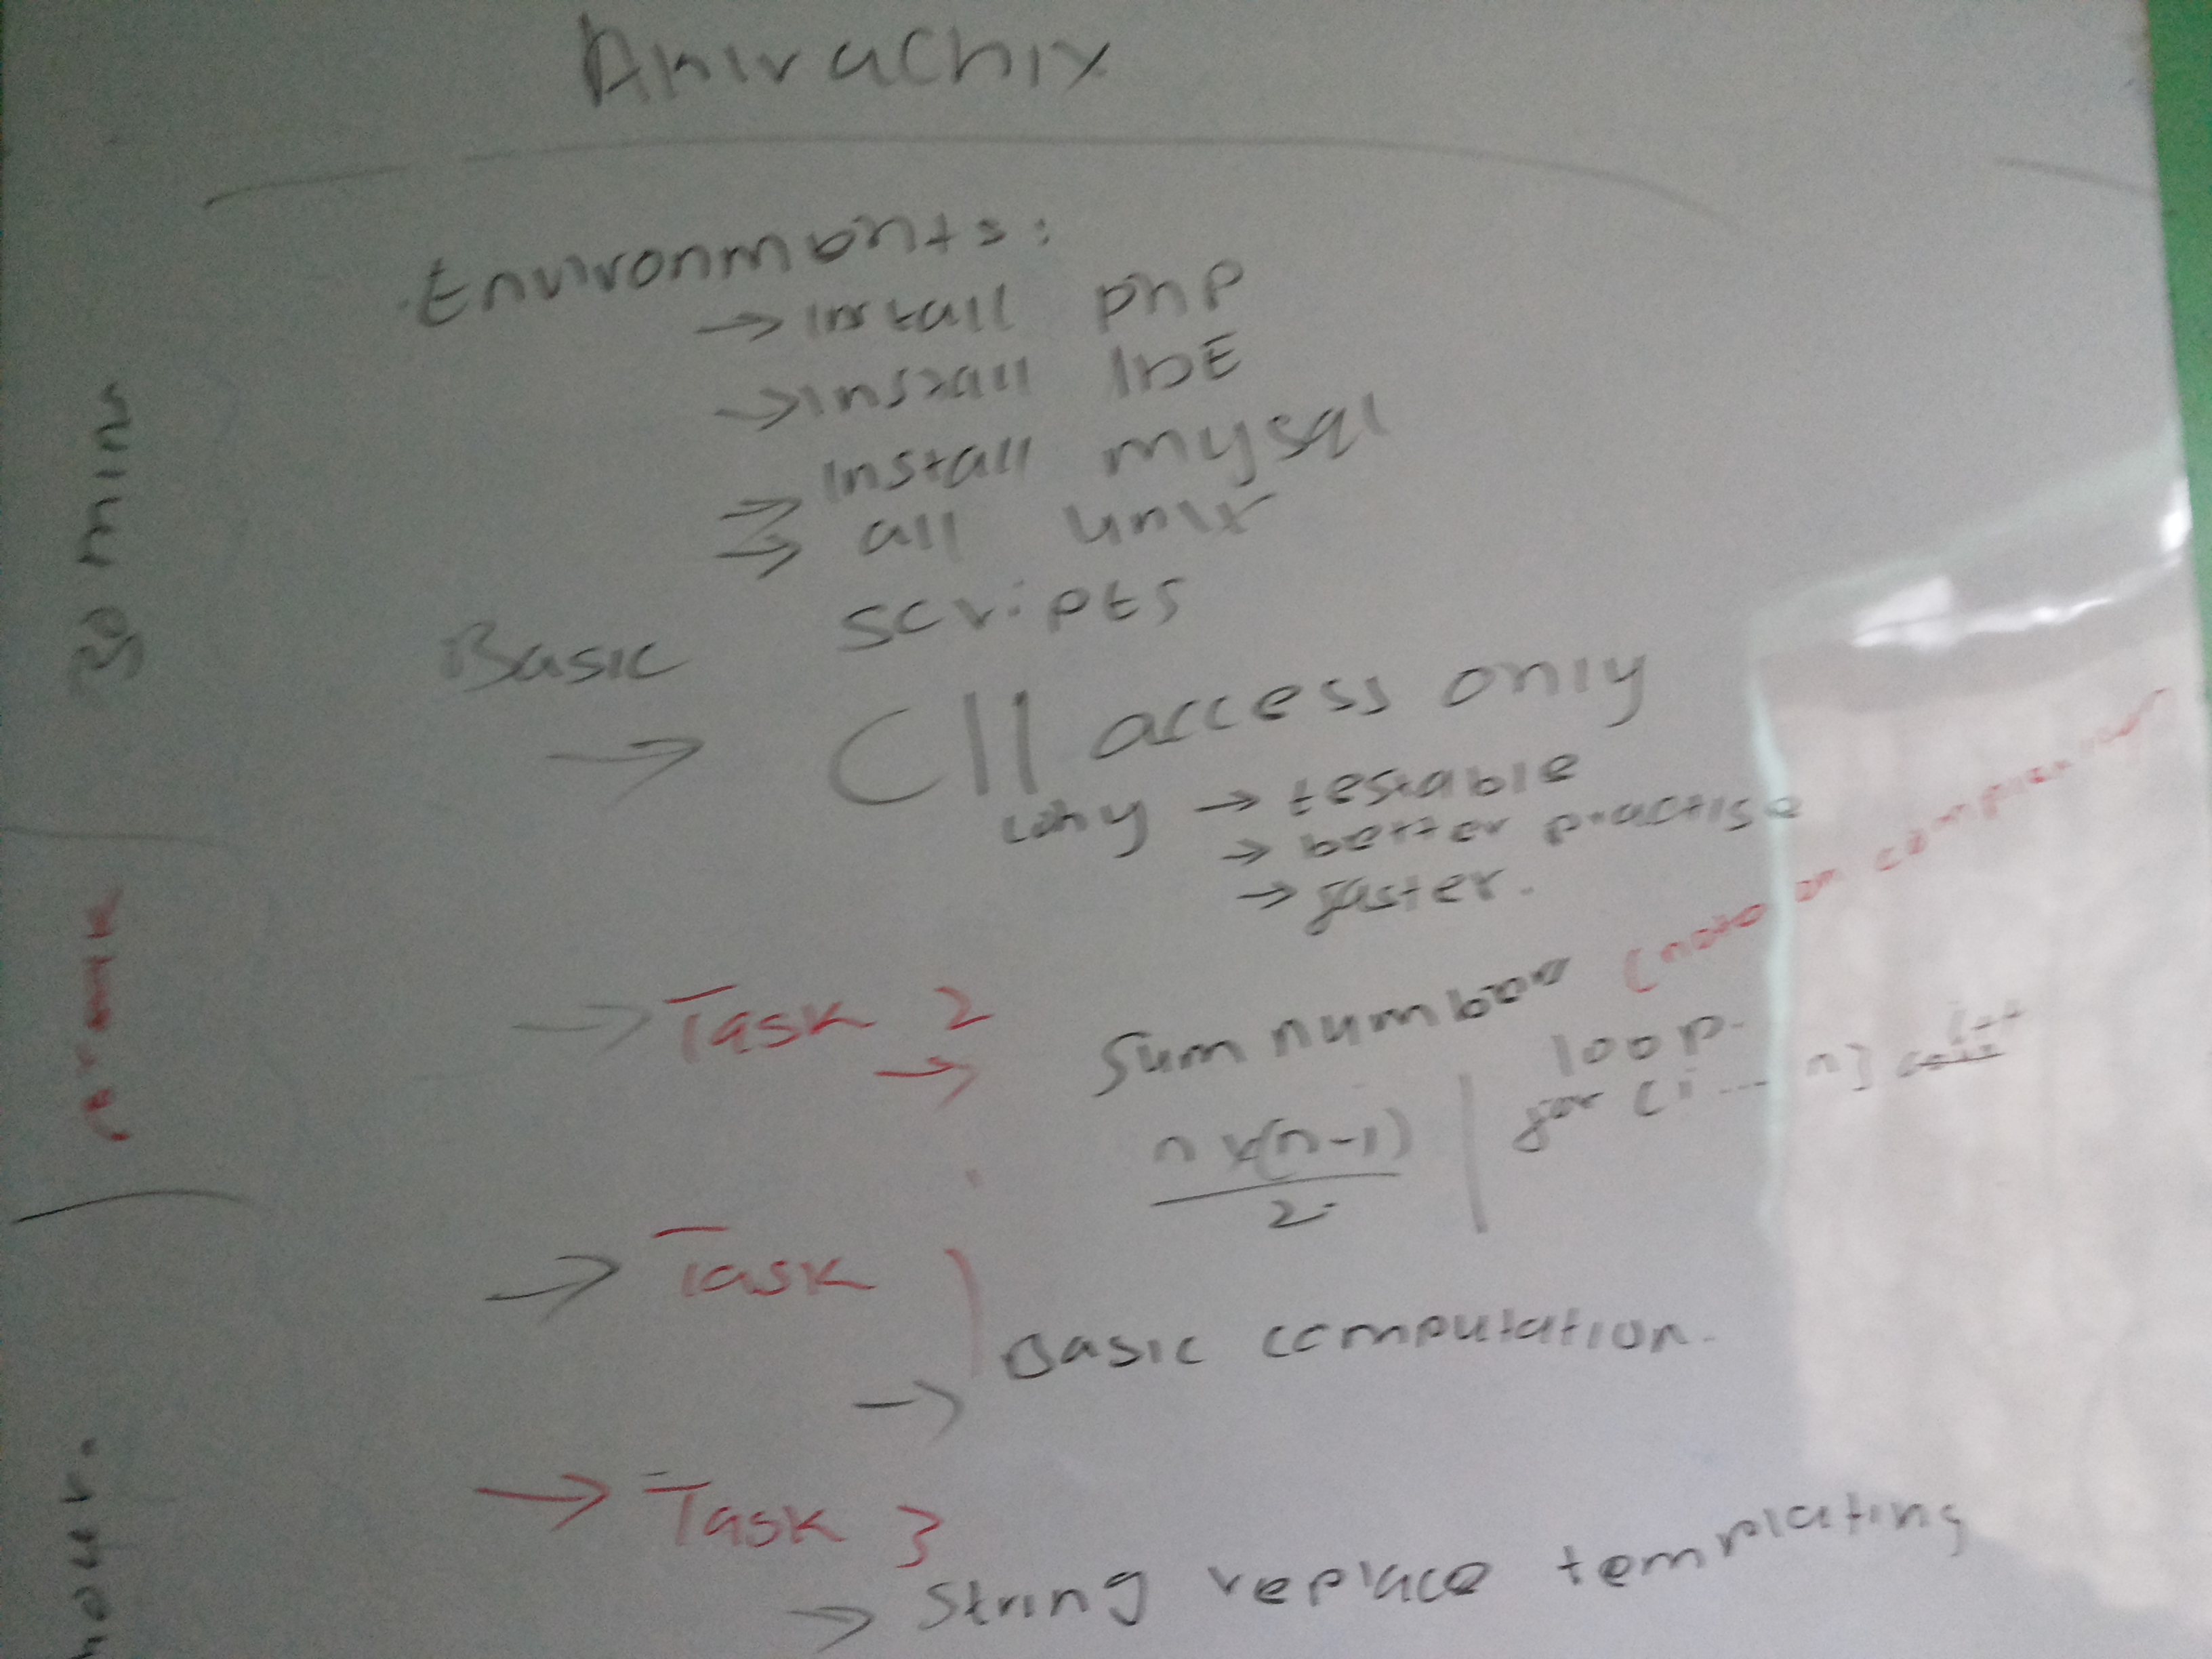 Akirachix
Environments:
→ install php
→ install IDE
→ install mysql
→ all unix
30 mins
Basic scripts
→ Cli access only
why → testable
→ better practise
→ faster.
→ Task 2
→ Sum number (note on complexity)
n x(n-1) / 2
loop.
for (i --- n] i++
→ Task
→ Basic computation.
→ Task 3
→ String replace templating
hour.